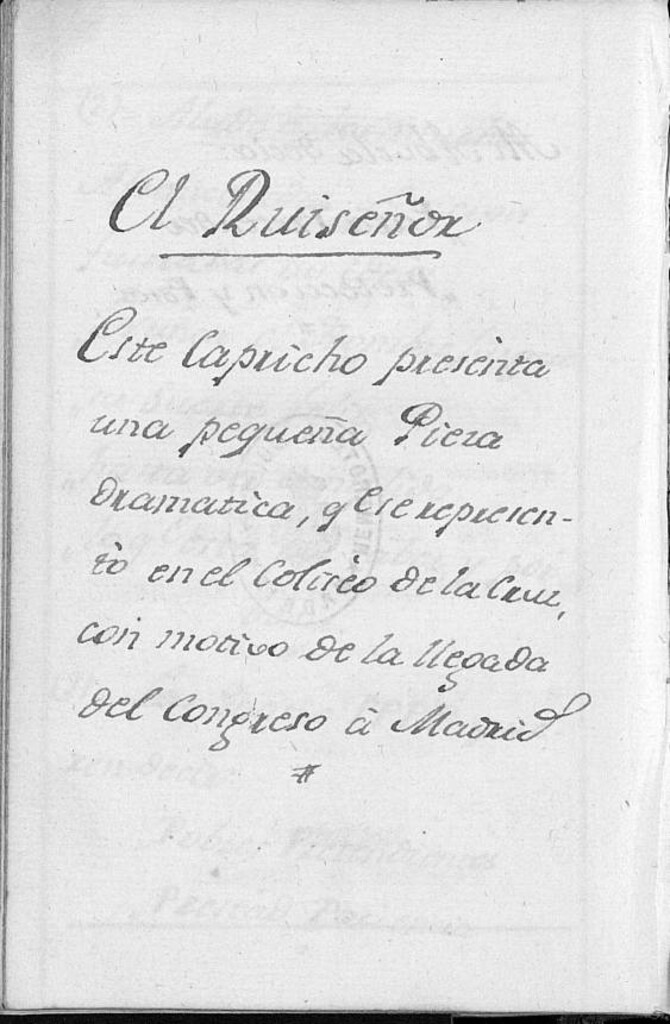 El Ruiseñor
Este Capricho presenta
una pequeña Pieza
dramatica, q.e se represen-
tò en el Coliseo de la Cruz,
con motivo de la llegada
del Congreso à Madrid
#